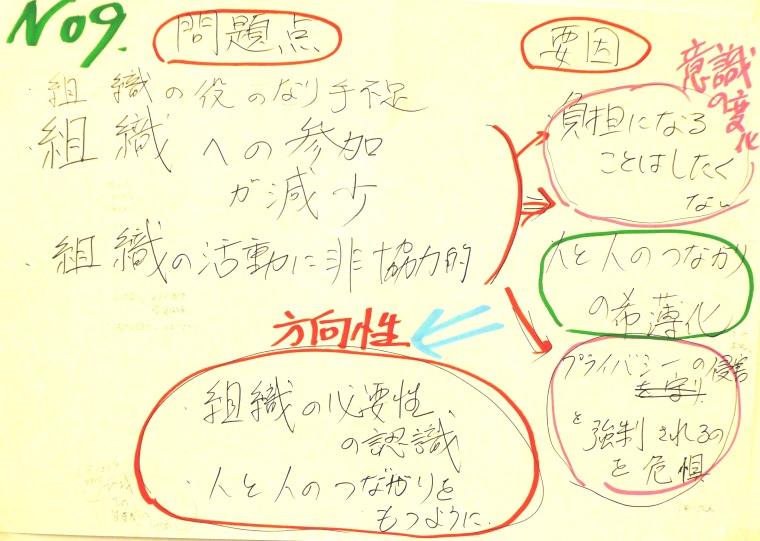 No9.
問題点
・組織の役のなり手不足
・組織への参加
が減少
・組織の活動に非協力的
要因
意識
の変化
負担になる
ことはしたく
ない
人と人のつながり
の希薄化
プライバシーの侵害
を守り
と強制されるの
を危惧
方向性
・組織の必要性、
の認識
・人と人のつながりを
もつように.